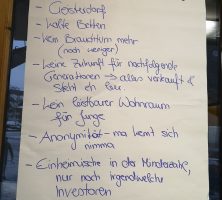 - Geisterdorf
- kalte Betten
- kein Brauchtum mehr
(noch weniger)
- keine Zukunft für nachfolgende
Generationen → alles verkauft &
steht eh leer
- kein leistbarer Wohnraum
für Junge
- Anonymität - ma kennt sich
nimma
- Einheimische in der Minderzahl,
nur noch irgendwelche
Investoren